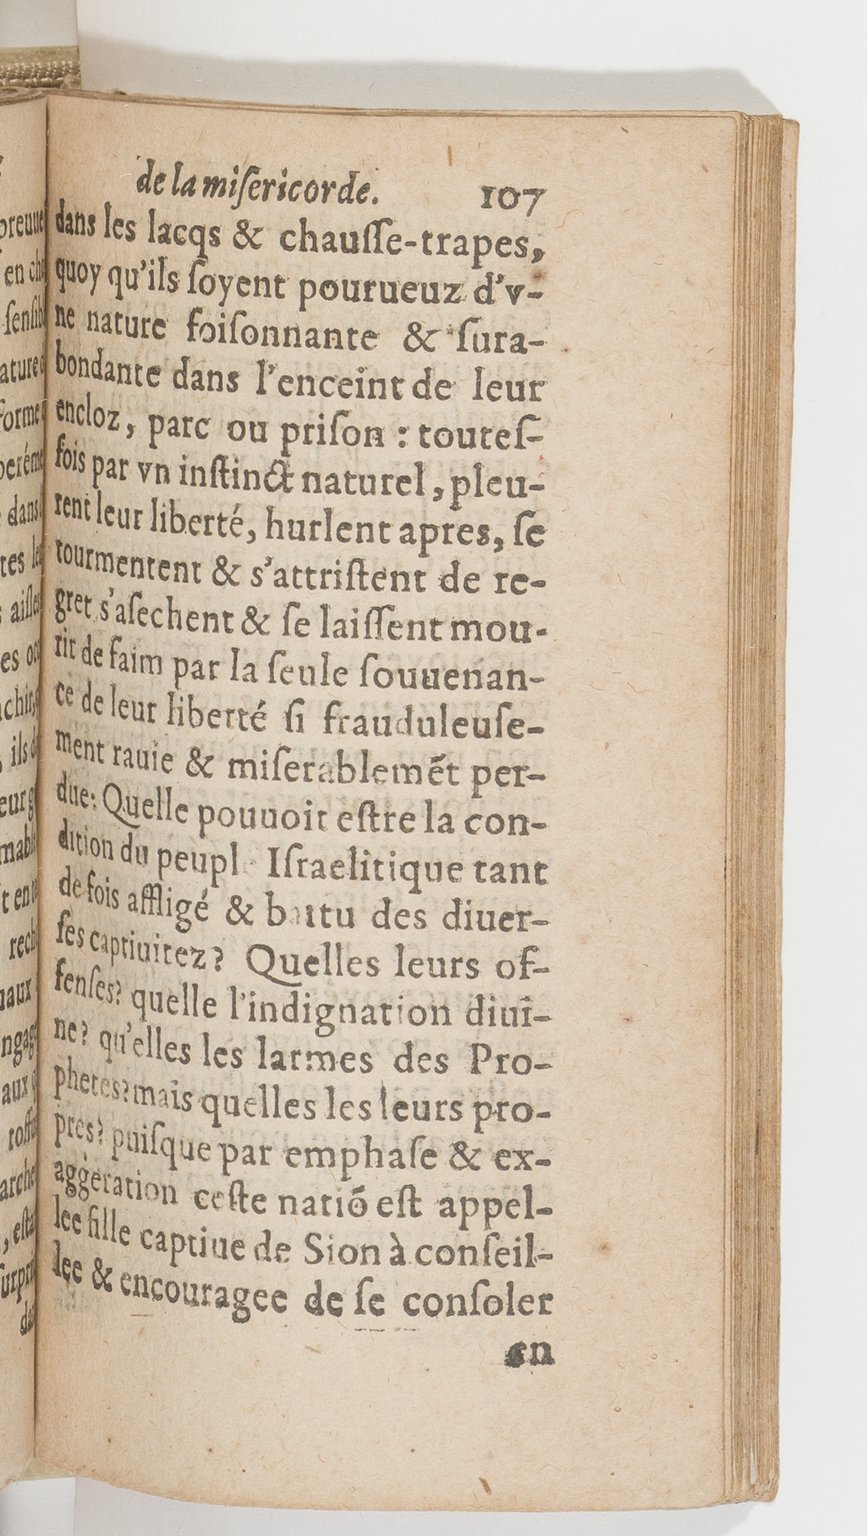 de la miſericorde. 107
dans les lacqs & chauſſe-trapes,
quoy qu'ils ſoyent pourueuz d'v-
ne nature foiſonnante & ſura-
bondante dans l'enceint de leur
encloz, parc ou priſon : touteſ-
fois par vn inſtinct naturel, pleu-
rent leur liberté, hurlent apres, ſe
tourmentent & s'attriſtent de re-
gret s'aſechent & ſe laiſſent mou-
rir de faim par la ſeule ſouuenan-
ce de leur liberté ſi frauduleuſe-
ment rauie & miſerablemẽt per-
due: Quelle pouuoit eſtre la con-
dition du peupl Iſraelitique tant
de fois affligé & battu des diuer-
ſes captiuitez? Quelles leurs of-
fenſes? quelle l'indignation diui-
ne? qu'elles les larmes des Pro-
phetes? mais quelles les leurs pro-
pres? puiſque par emphaſe & ex-
aggeration ceſte natiõ eſt appel-
lee fille captiue de Sion à conſeil-
lee & encouragee de ſe conſoler
en